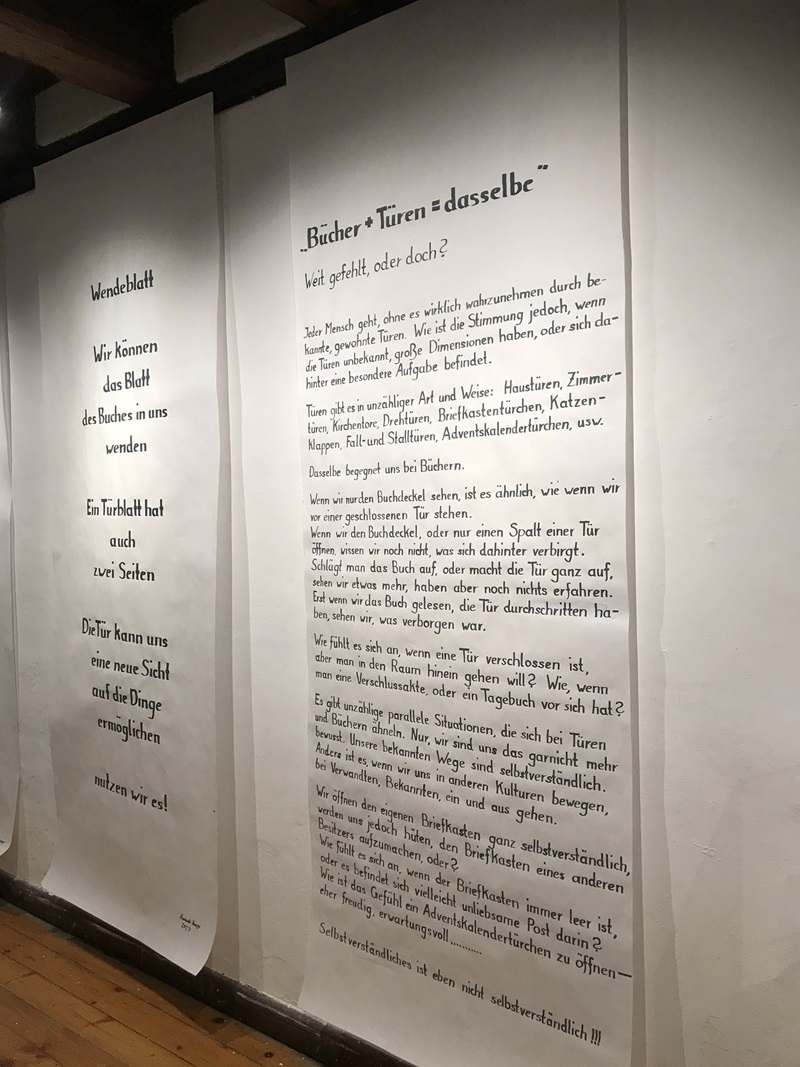 Wendeblatt
Wir können
das Blatt
des Buches in uns
wenden
Ein Türblatt hat
auch
zwei Seiten
Die Tür kann uns
eine neue Sicht
auf die Dinge
ermöglichen
nutzen wir es!
„Bücher + Türen = dasselbe“
Weit gefehlt, oder doch?
Jeder Mensch geht, ohne es wirklich wahrzunehmen durch be-
kannte, gewohnte Türen. Wie ist die Stimmung jedoch, wenn
die Türen unbekannt, große Dimensionen haben, oder sich da-
hinter eine besondere Aufgabe befindet.
Türen gibt es in unzähliger Art und Weise: Haustüren, Zimmer-
türen, Kirchentore, Drehtüren, Briefkastentürchen, Katzen-
klappen, Fall- und Stalltüren, Adventskalendertürchen, usw.
Dasselbe begegnet uns bei Büchern.
Wenn wir nur den Buchdeckel sehen, ist es ähnlich, wie wenn wir
vor einer geschlossenen Tür stehen.
Wenn wir den Buchdeckel, oder nur einen Spalt einer Tür
öffnen, wissen wir noch nicht, was sich dahinter verbirgt.
Schlägt man das Buch auf, oder macht die Tür ganz auf,
sehen wir etwas mehr, haben aber noch nichts erfahren.
Erst wenn wir das Buch gelesen, die Tür durchschritten ha-
ben, sehen wir, was verborgen war.
Wie fühlt es sich an, wenn eine Tür verschlossen ist,
aber man in den Raum hinein gehen will? Wie, wenn
man eine Verschlussakte, oder ein Tagebuch vor sich hat?
Es gibt unzählige parallele Situationen, die sich bei Türen
und Büchern ähneln. Nur, wir sind uns das garnicht mehr
bewusst. Unsere bekannten Wege sind selbstverständlich.
Anders ist es, wenn wir uns in anderen Kulturen bewegen,
bei Verwandten, Bekannten, ein und aus gehen.
Wir öffnen den eigenen Briefkasten ganz selbstverständlich,
werden uns jedoch hüten, den Briefkasten eines anderen
Besitzers aufzumachen, oder?
Wie fühlt es sich an, wenn der Briefkasten immer leer ist,
oder es befindet sich vielleicht unliebsame Post darin?
Wie ist das Gefühl ein Adventskalendertürchen zu öffnen—
eher freudig, erwartungsvoll...........
Selbstverständliches ist eben nicht selbstverständlich!!!